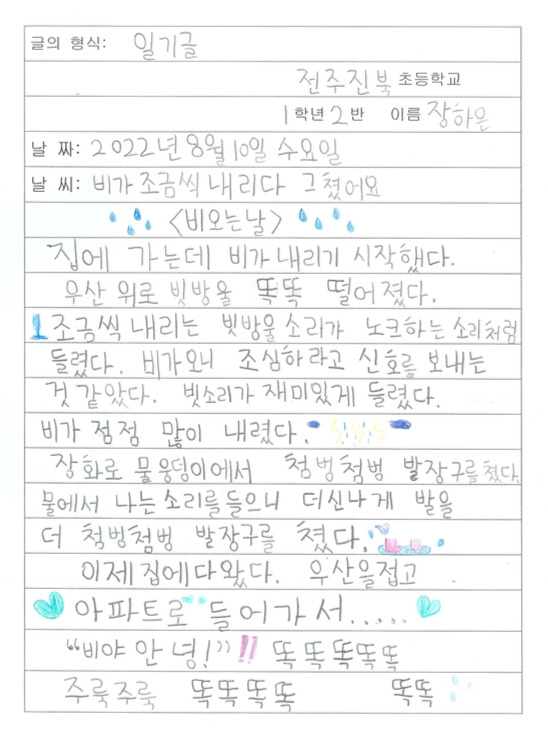 글의 형식: 일기글
전주진북 초등학교
1학년 2반 이름 장하은
날 짜: 2022년 8월 10일 수요일
날 씨: 비가 조금씩 내리다 그쳤어요
<비오는날>
집에 가는데 비가 내리기 시작했다.
우산 위로 빗방울 똑똑 떨어졌다.
조금씩 내리는 빗방울 소리가 노크하는 소리처럼
들렸다. 비가오니 조심하라고 신호를 보내는
것 같았다. 빗소리가 재미있게 들렸다.
비가 점점 많이 내렸다.
장화로 물웅덩이에서 첨벙첨벙 발장구를 쳤다.
물에서 나는 소리를 들으니 더 신나게 발을
더 첨벙첨벙 발장구를 쳤다.
이제 집에 다왔다. 우산을 접고
아파트로 들어가서.....
“비야 안녕!”!! 똑똑똑똑똑
주룩주룩 똑똑똑똑 똑똑